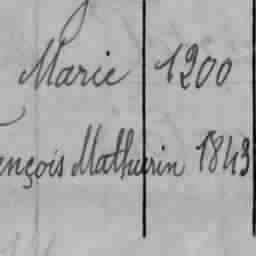 Marie 1200
ençois Mathurin 1843